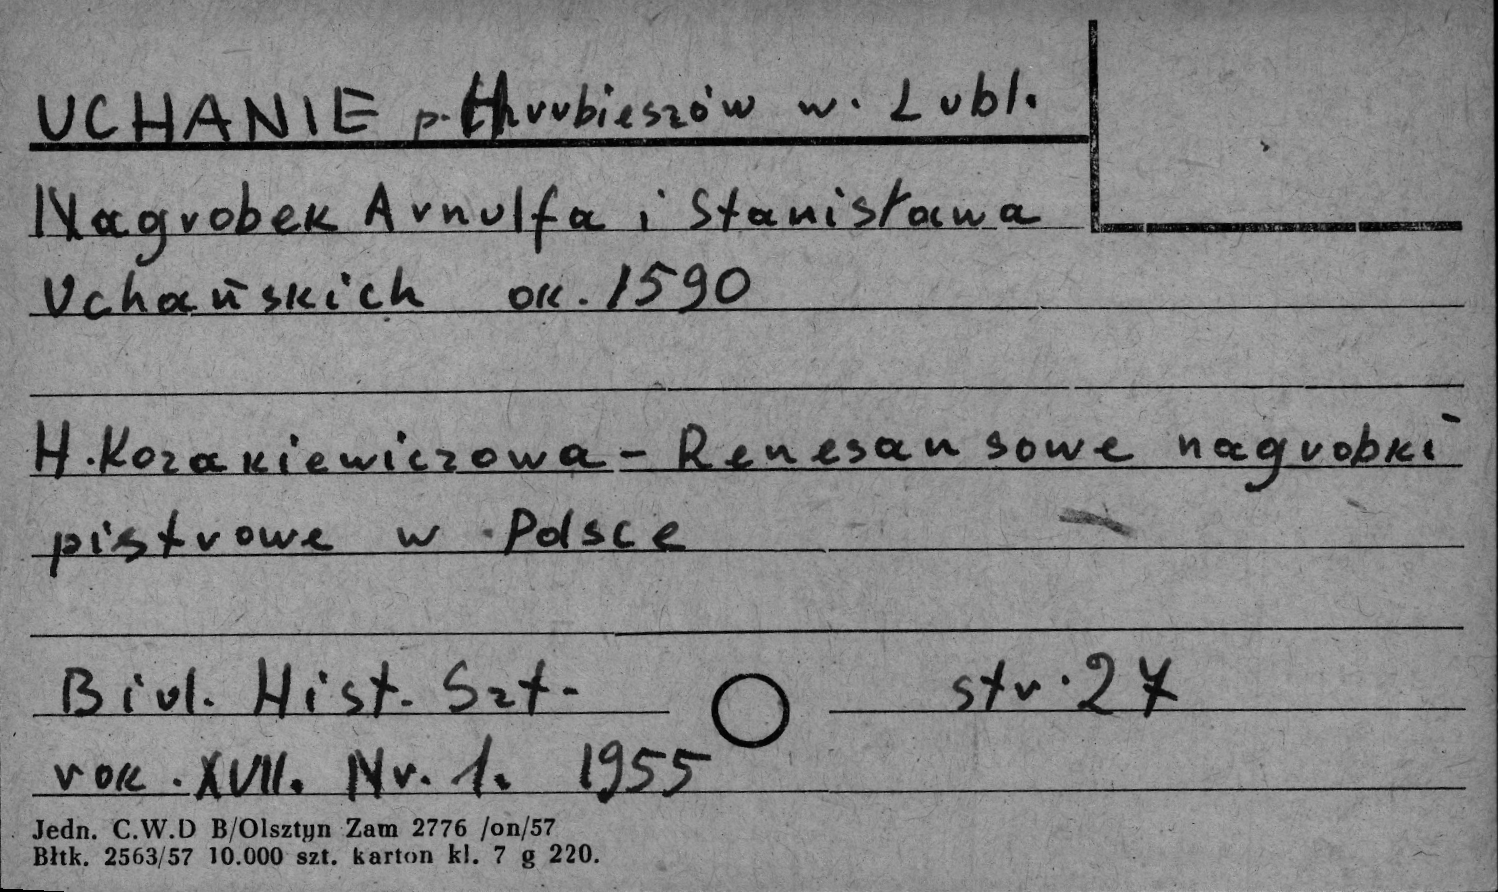 UCHANIE p. Hrubieszów w. Lubl.
Nagrobek Arnulfa i Stanisława
Uchańskich ok. 1590
H. Kozakiewiczowa - Renesansowe nagrobki
pistrowe w Polsce
Biul. Hist. Szt. str. 27
rok. XVII. Nr. 1. 1955
Jedn. C.W.D B/Olsztyn Zam 2776 /on/57
Błtk. 2563/57 10.000 szt. karton kl. 7 g 220.